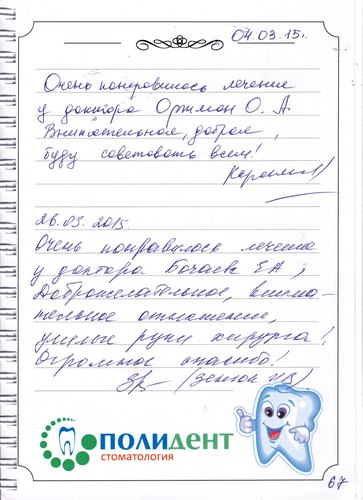 04.03.15г.
Очень понравилось лечение
у доктора Ортман О. А.
Внимательная, добрая,
буду советовать всем!
26.03.2015
Очень понравилось лечение
у доктора Бочаев ЕА,
Доброжелательное, внима-
тельное отношение,
умелые руки хирурга!
Огромное спасибо!
ПОЛИДЕНТ
СТОМАТОЛОГИЯ
67